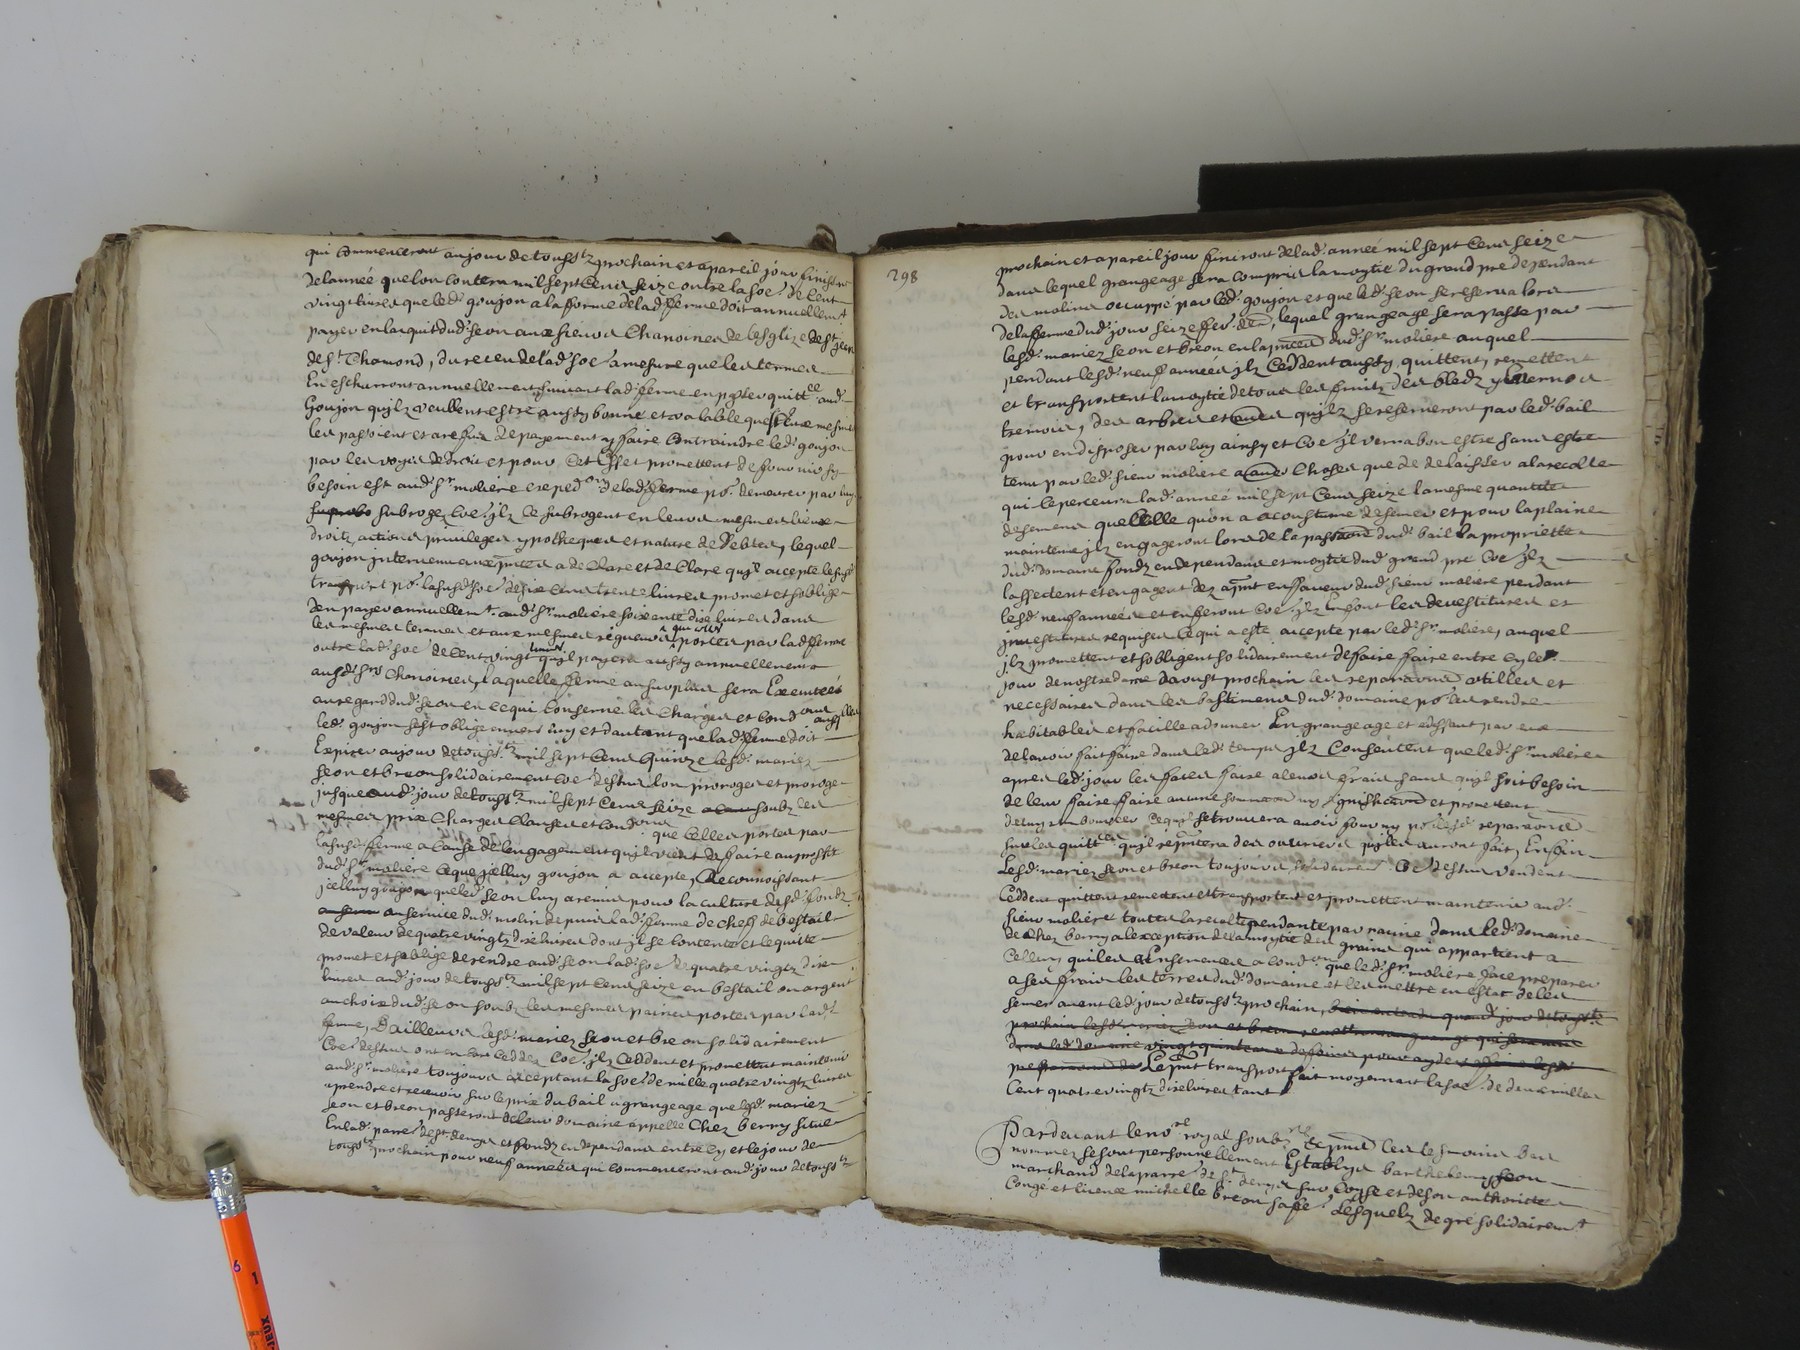 qui commenceront au jour de touss.tz prochain et a pareil jour finiss.nt
de lannée que lon contera mil sept cens seize outre la so.e de cent
vingt livres que led. goujon a la fforme de lad. fferme doit annuellem.t
payer en lacquit dud. seon aux sieurs chanoines de lesglize de st jean
de st. Chamond, du reveu de lad. soe a mesure que les termes
en escherront annuellement suivant lad. ferme en quitt.ce aud.
Goujon qu'jlz veullent estre aussy bonne et valable que sy eux mesmes
les passoient et a deffaut de payement y faire contraindre led. goujon
par les voyes de droit et pour cet effet promettent de fournir sy
besoin est aud. sr. moliere exped.on de lad. ferme po. demeurer par luy
subrogé Coe jlz le subrogent en leurs mesmes lieux
droitz actions privileges ypotheques et nature de debtes, lequel
goujon jntervenu aux p.ntes a declare et declare qu'jl accepte le susd.
transport po. la susd. soe de six cens trente livres promet et soblige
den payer annuellem.t aud. sr. moliere soixante dix livres dans
les mesmes termes et aux mesmes rigueurs qui sont portees par lad. fferme
outre lad. soe de cent vingt livres qu'jl payera aussy annuellement
ausd. srs Chanoines, laquelle fferme au surplus sera Executée
au regard dud. seon en ce qui conserne les charges et cond.ons ausquelles
led. goujon sest oblige envers luy et dautant que lad. fferme doit
Expirer au jour de touss.tz mil sept cens quinze lesd. mariez
seon et breon solidairement Coe dessus lon proroger et proroge
jusques aud. jour de touss.tz mil sept cens seize soubz les
mesmes prix charges clauses et cond.ons que celles portes par
la susd. fferme a cause de lengagement qu'jl vient de faire au proffit
dud. sr. moliere ce que jcelluy goujon a accepte, Reconnoissant
jcelluy goujon que led. seon luy a remis pour la culture desd. fondz
au service dud. molin depuis lad. fferme de cheff de bestail
de valeur de quatre vingtz dix livres dont jl se contente et le quitte
promet et soblige de rendre aud. seon lad. soe de quatre vingtz dix
livres aud. jour de touss.tz mil sept cens seize en bestail ou argent
au choix dud. seon soubz les mesmes paines portes par lad.
ferme, Dailleurs lesd. mariez seon et breon solidairement
Coe dessus ont encore ceddes Coe jlz ceddent et promettent maintenir
aud. sr. moliere toujours acceptant la soe de mille quatre vingtz livres
a prendre et recevoir sur le prix du bail a grangeage que lesd. mariez
seon et breon passeront de leur domaine appelle Chez berry situé
En lad. parre. de st. denys et fondz en dependans entre cy et le jour de
touss.tz prochain pour neuf années qui commenceront aud. jour de touss.tz
298
prochain et a pareil jour finiront de lad. année mil sept cens seize
dans lequel grangeage sera compris la moytie du grand pre dependant
des molins occuppé par led. goujon et que led. seon se reserva lors
de la fferme dud. jour seize ffev. der., lequel grangeage sera passe par
lesd. mariez seon et breon en la presence dud. sr. moliere auquel
pendant lesd. neuf années jlz ceddent aussy, quittent, remettent
et transportent la moytie de tous les fruitz des bledz yvernos
tremois, des arbres et autres qu'jlz se reserveront par led. bail
pour en disposer par luy ainsy et Coe jl verra bon estre sans estre
tenu par led. sieur moliere a autre choses que de delaisser a la recolte
qui se percevra lad. année mil sept cens seize la mesme quantite
de semens quelle quon a acoustume de semer et pour la plaine
maintene jlz engageront lors de la passation dud. bail la propriette
dud. domaine fondz en dependans et moytie dud. grand pre Coe jlz
laffectent et engagent dez a p.nt en faveur dud. sieur moliere pendant
lesd. neuf années et en feront Coe jlz en font les devestitures et
jnvestitures requises ce qui a este accepte par led. sr. moliere, auquel
jlz promettent et sobligent solidairement de faire faire entre cy le
jour de nostre dame daoust prochain les reparations utilles et
necessaires dans les bastimens dud. domaine po. les rendre
habitables et facille a donner En grangeage et a deffaut par eux
de lavoir fait faire dans led. temps jlz consentent que led. sr. moliere
apres led. jour les fasse faire a leurs frais sans qu'jl soit besoin
de leur faire faire aucune sommation ny signification et promettent
de luy rembourcer ce quil se trouvera avoir fourny po. lesd. reparations
sur les quitt.ces qu'jl raportera des ouvriers qui les auront fait, Enfin
Lesd. mariez seon et breon toujours solidairem.t Coe dessus vendent
Ceddent quittent remettent et transportent et promettent maintenir aud.
sieur moliere toutte la recolte pendante par racine dans led. domaine
de Chez berry a lexception de la moytie des grains qui appartient a
Celluy qui les a Ensemencer a cond.on que led. sr. moliere fera preparer
a ses frais les terres dud. domaine et les mettre en estat de les
semer avant led. jour de touss.tz prochain,
Le p.nt transport fait moyennant la soe de deux milles
Cent quatre vingtz dix livres tant
Par devant le no.re royal soubz.né et present les tesmoins bas
nommez se sont personnellement Establys barthelemy seon
marchand de la parre. de st. denys sur Coyse et de son authorite
Congé et licence michelle breon sa fe. Lesquelz de gré solidairem.t